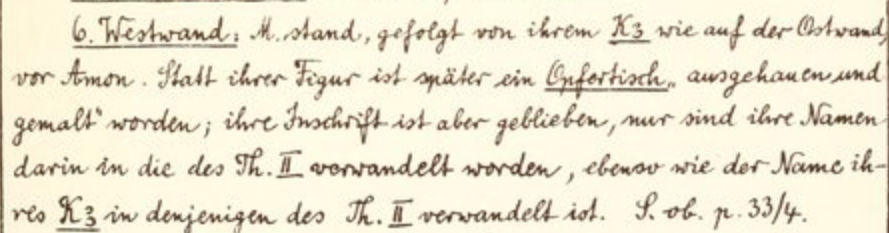 6. Westwand: M. stand, gefolgt von ihrem K3 wie auf der Ostwand,
vor Amon. Statt ihrer Figur ist später ein Opfertisch „ausgehauen und
gemalt" worden; ihre Inschrift ist aber geblieben, nur sind ihre Namen
darin in die des Th. II verwandelt worden, ebenso wie der Name ih-
res K3 in denjenigen des Th. II verwandelt ist. S. ob. p. 33/4.